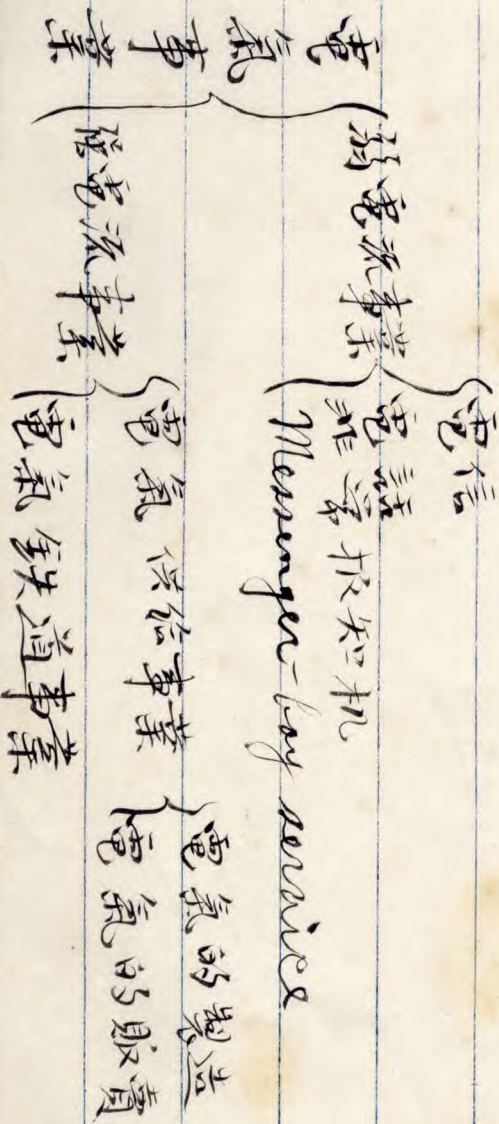 電氣事業
弱電流事業
電信
電話
非常报知机
Messenger-boy service
強電流事業
電氣供給事業
電氣的製造
電氣的販賣
電氣鉄道事業